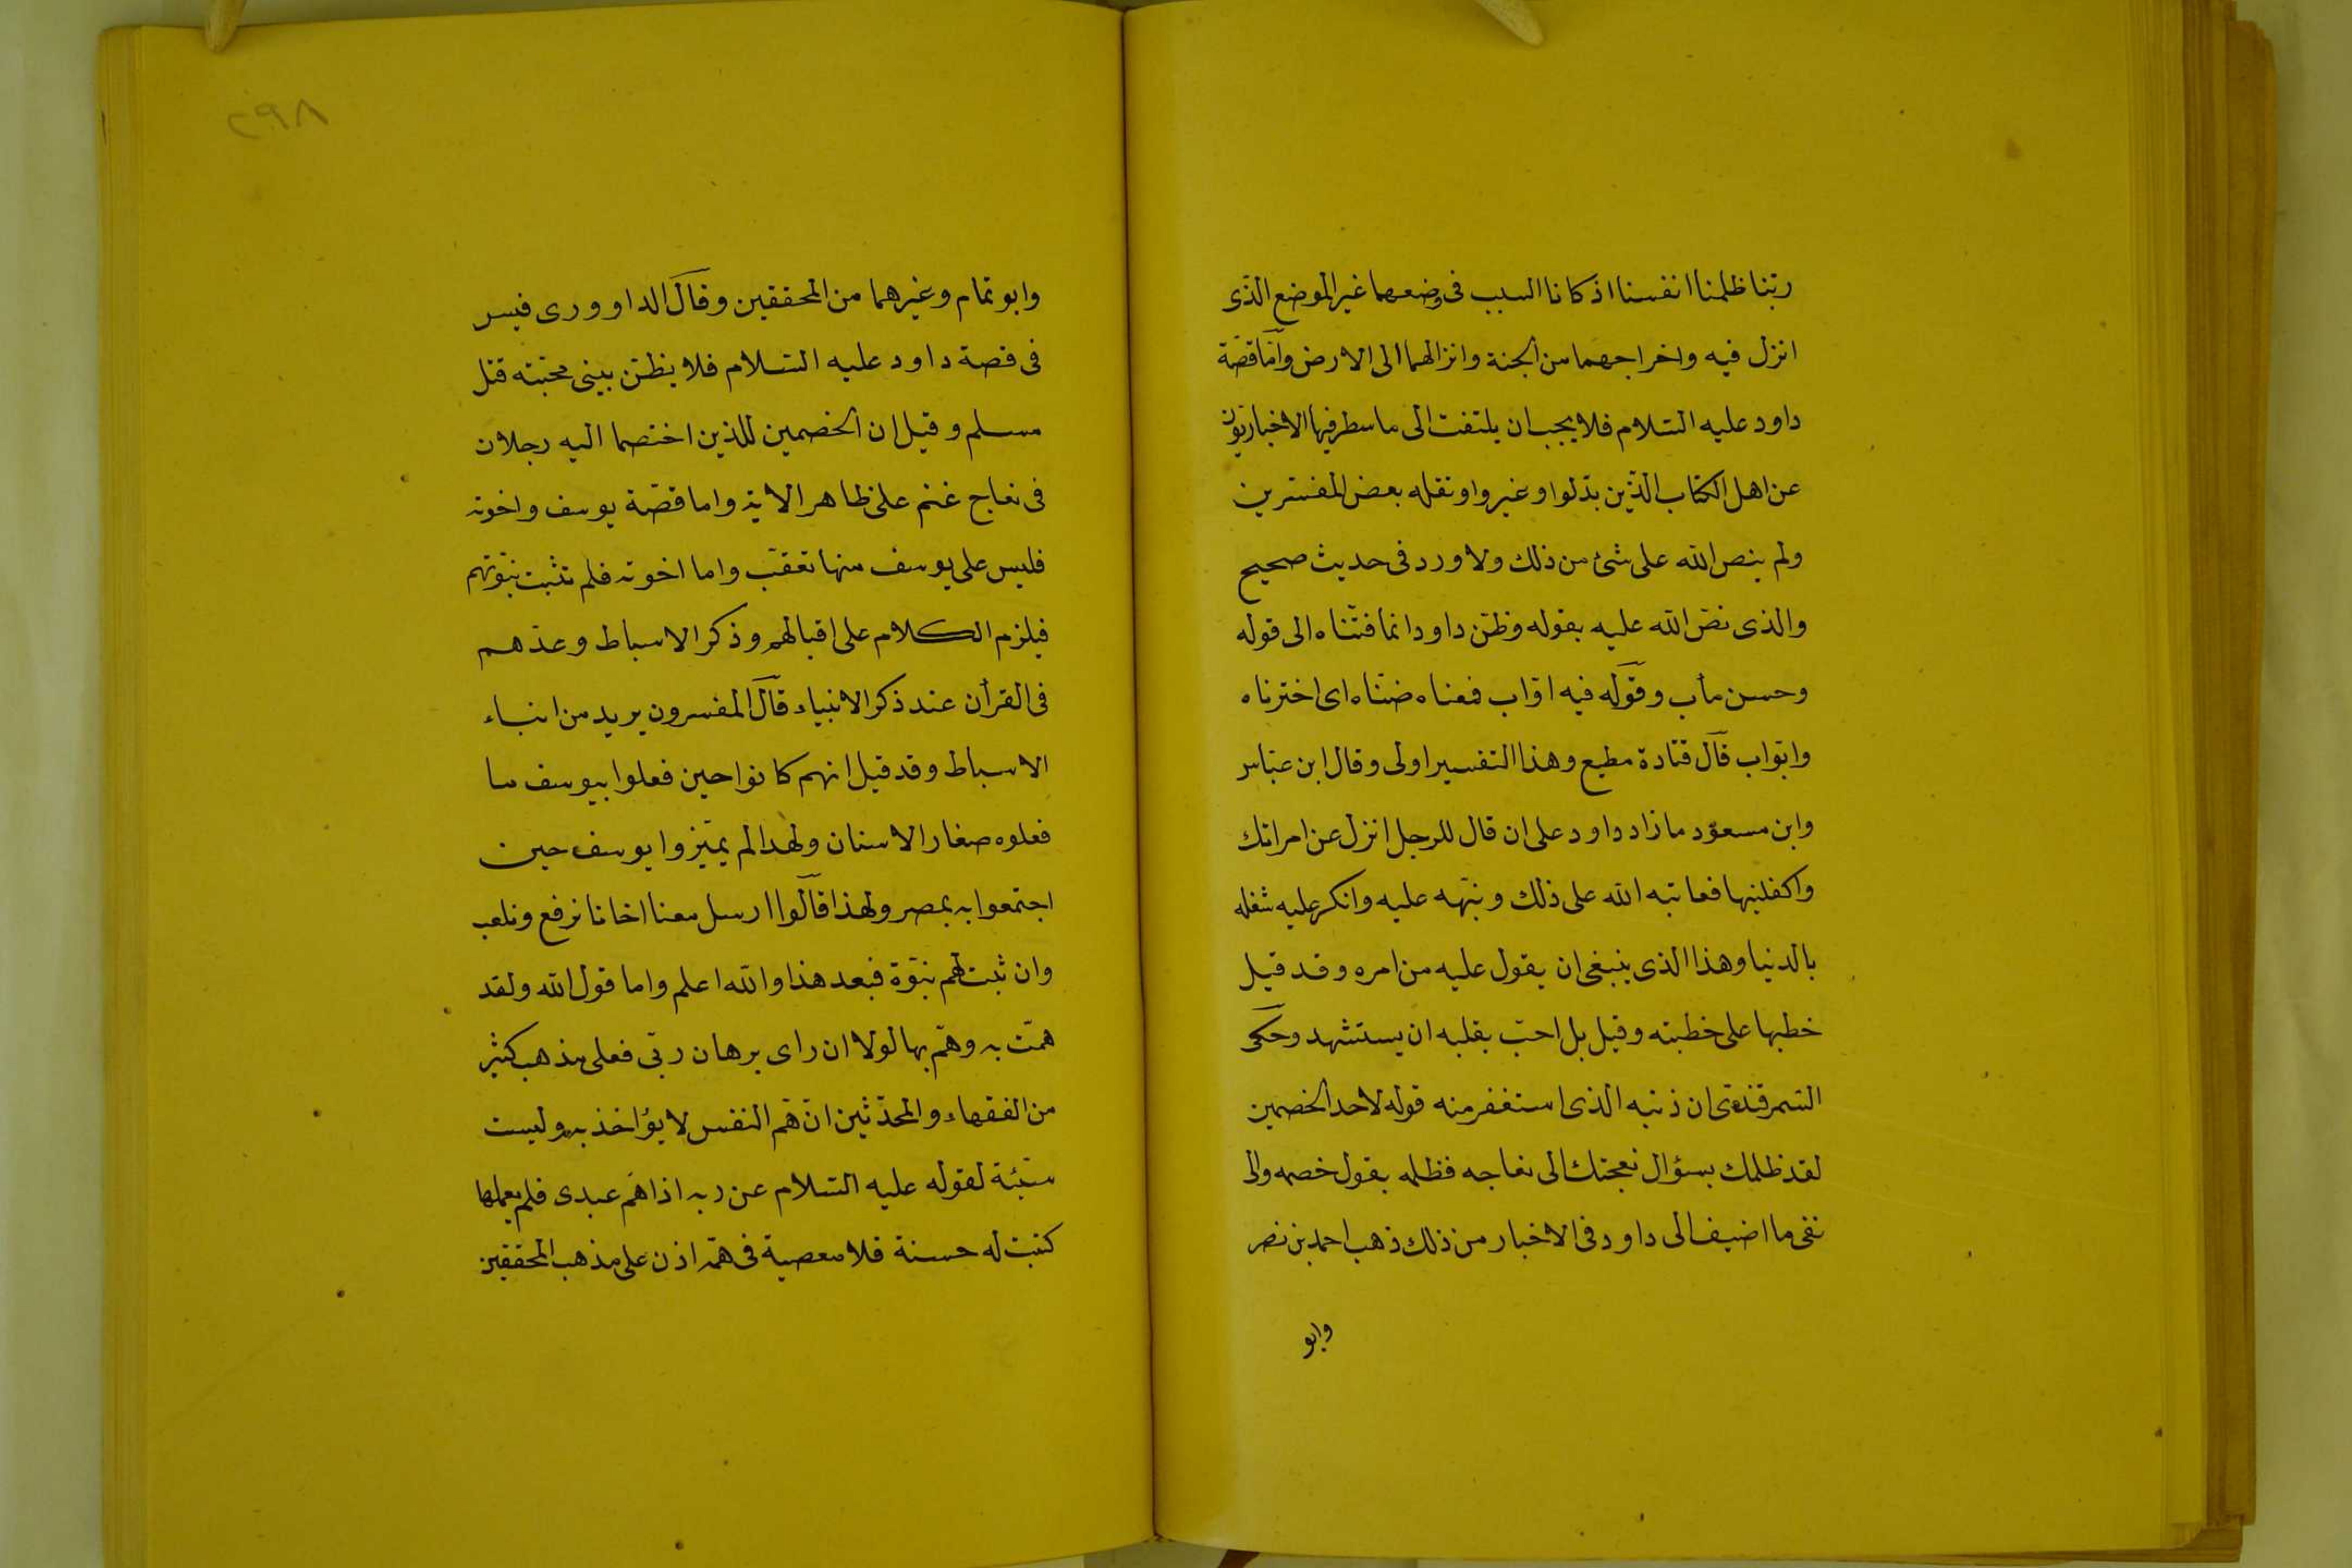 ربّنا ظلمنا انفسنا اذ كانا السبب فى وضعهما غير الموضع الذى
انزل فيه واخراجهما من الجنة وانزالهما الى الارض وامّا قصّة
داود عليه السّلام فلا يجب ان يلتفت الى ما سطر فيها الاخباريّون
عن اهل الكتاب الذّين بدّلوا وغيروا ونقله بعض المفسّرين
ولم ينص الله على شئ من ذلك ولا ورد فى حديث صحيح
والذى نصّ الله عليه بقوله وظنّ داود انما فتنّاه الى قوله
وحسن مأب وقوله فيه اوّاب فمعناه ضنّاه اى اختبرناه
واوّاب قال قتادة مطيع وهذا التفسير اولى وقال ابن عبّاس
وابن مسعود ما زاد داود على ان قال للرجل انزل عن امراتك
واكفلنيها فعاتبه الله على ذلك ونبّهه عليه وانكر عليه شغله
بالدنيا وهذا الذى ينبغى ان يقول عليه من امره وقد قيل
خطبها على خطبته وقيل بل احبّ بقلبه ان يستشهد وحكى
السّمرقندى ان ذنبه الذى استغفر منه قوله لاحد الخصمين
لقد ظلمك بسؤال نعجتك الى نعاجه فظلمه بقول خصمه والى
نفى ما اضيف الى داود فى الاخبار من ذلك ذهب احمد بن نصر
وابو
٢٩٨
وابو تمام وغيرهما من المحققين وقال الداوورى فيس
فى قصة داود عليه السّلام فلا يظنّ بنبى محبّته قتل
مسلم وقيل ان الخصمين للذين اختصما اليه رجلان
فى نعاج غنم على ظاهر الاية واما قصّة يوسف واخوته
فليس على يوسف منها تعقّب واما اخوته فلم تثبت نبوّتهم
فيلزم الكلام على اقبالهم وذكر الاسباط وعدّهم
فى القرأن عند ذكر الانبياء قال المفسرون يريد من ابناء
الاسباط وقد قيل انهم كانوا حين فعلوا بيوسف ما
فعلوه صغار الاسنان ولهدا لم يميّزوا يوسف حين
اجتمعوا به بمصر ولهذا قالوا ارسل معنا اخانا نرفع ونلعب
وان ثبت لهم نبوّة فبعد هذا والله اعلم واما قول الله ولقد
همّت به وهمّ بها لولا ان راى برهان ربّى فعلى مذهب كثير
من الفقهاء والمحدّثين انّ همّ النفس لا يؤاخذ به وليست
سيّئة لقوله عليه السّلام عن ربه اذا همّ عبدى فلم يعملها
كتبت له حسنة فلا معصية فى همّه اذن على مذهب المحققين